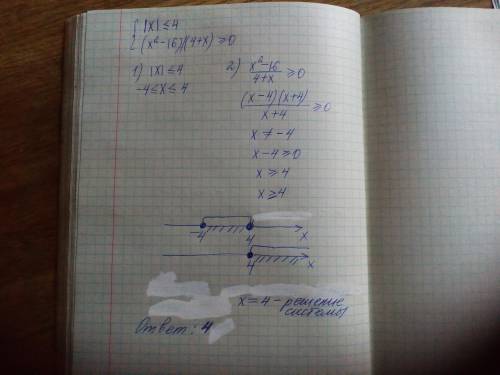 { |x| ≤ 4
(x²-16)/(4+x) ≥ 0
1) |x| ≤ 4
-4 ≤ x ≤ 4
2) x²-16 / 4+x ≥ 0
(x-4)(x+4) / x+4 ≥ 0
x ≠ -4
x-4 ≥ 0
x ≥ 4
x ≥ 4
-4 4 x
4 x
x = 4 - решение
системы
Ответ: 4